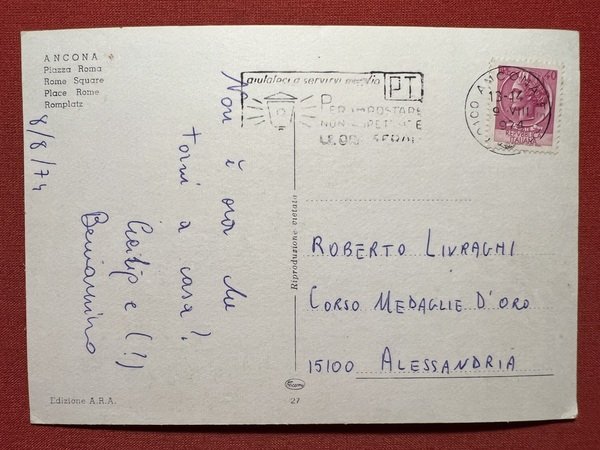 ANCONA
Piazza Roma
Rome Square
Place Rome
Romplatz
8/8/74
Non è ora che
torni a casa?
e (!)
Beniamino
aiutateci a servirvi meglio
PT
PER IMPOSTARE
NON ASPETTATE
LE ORE SERALI
ANCONA
13-14
9 VIII
974
40
ITALIANE
Riproduzione vietata
ROBERTO LIVRAGHI
CORSO MEDAGLIE D'ORO
15100 ALESSANDRIA
Edizione A.R.A.
27